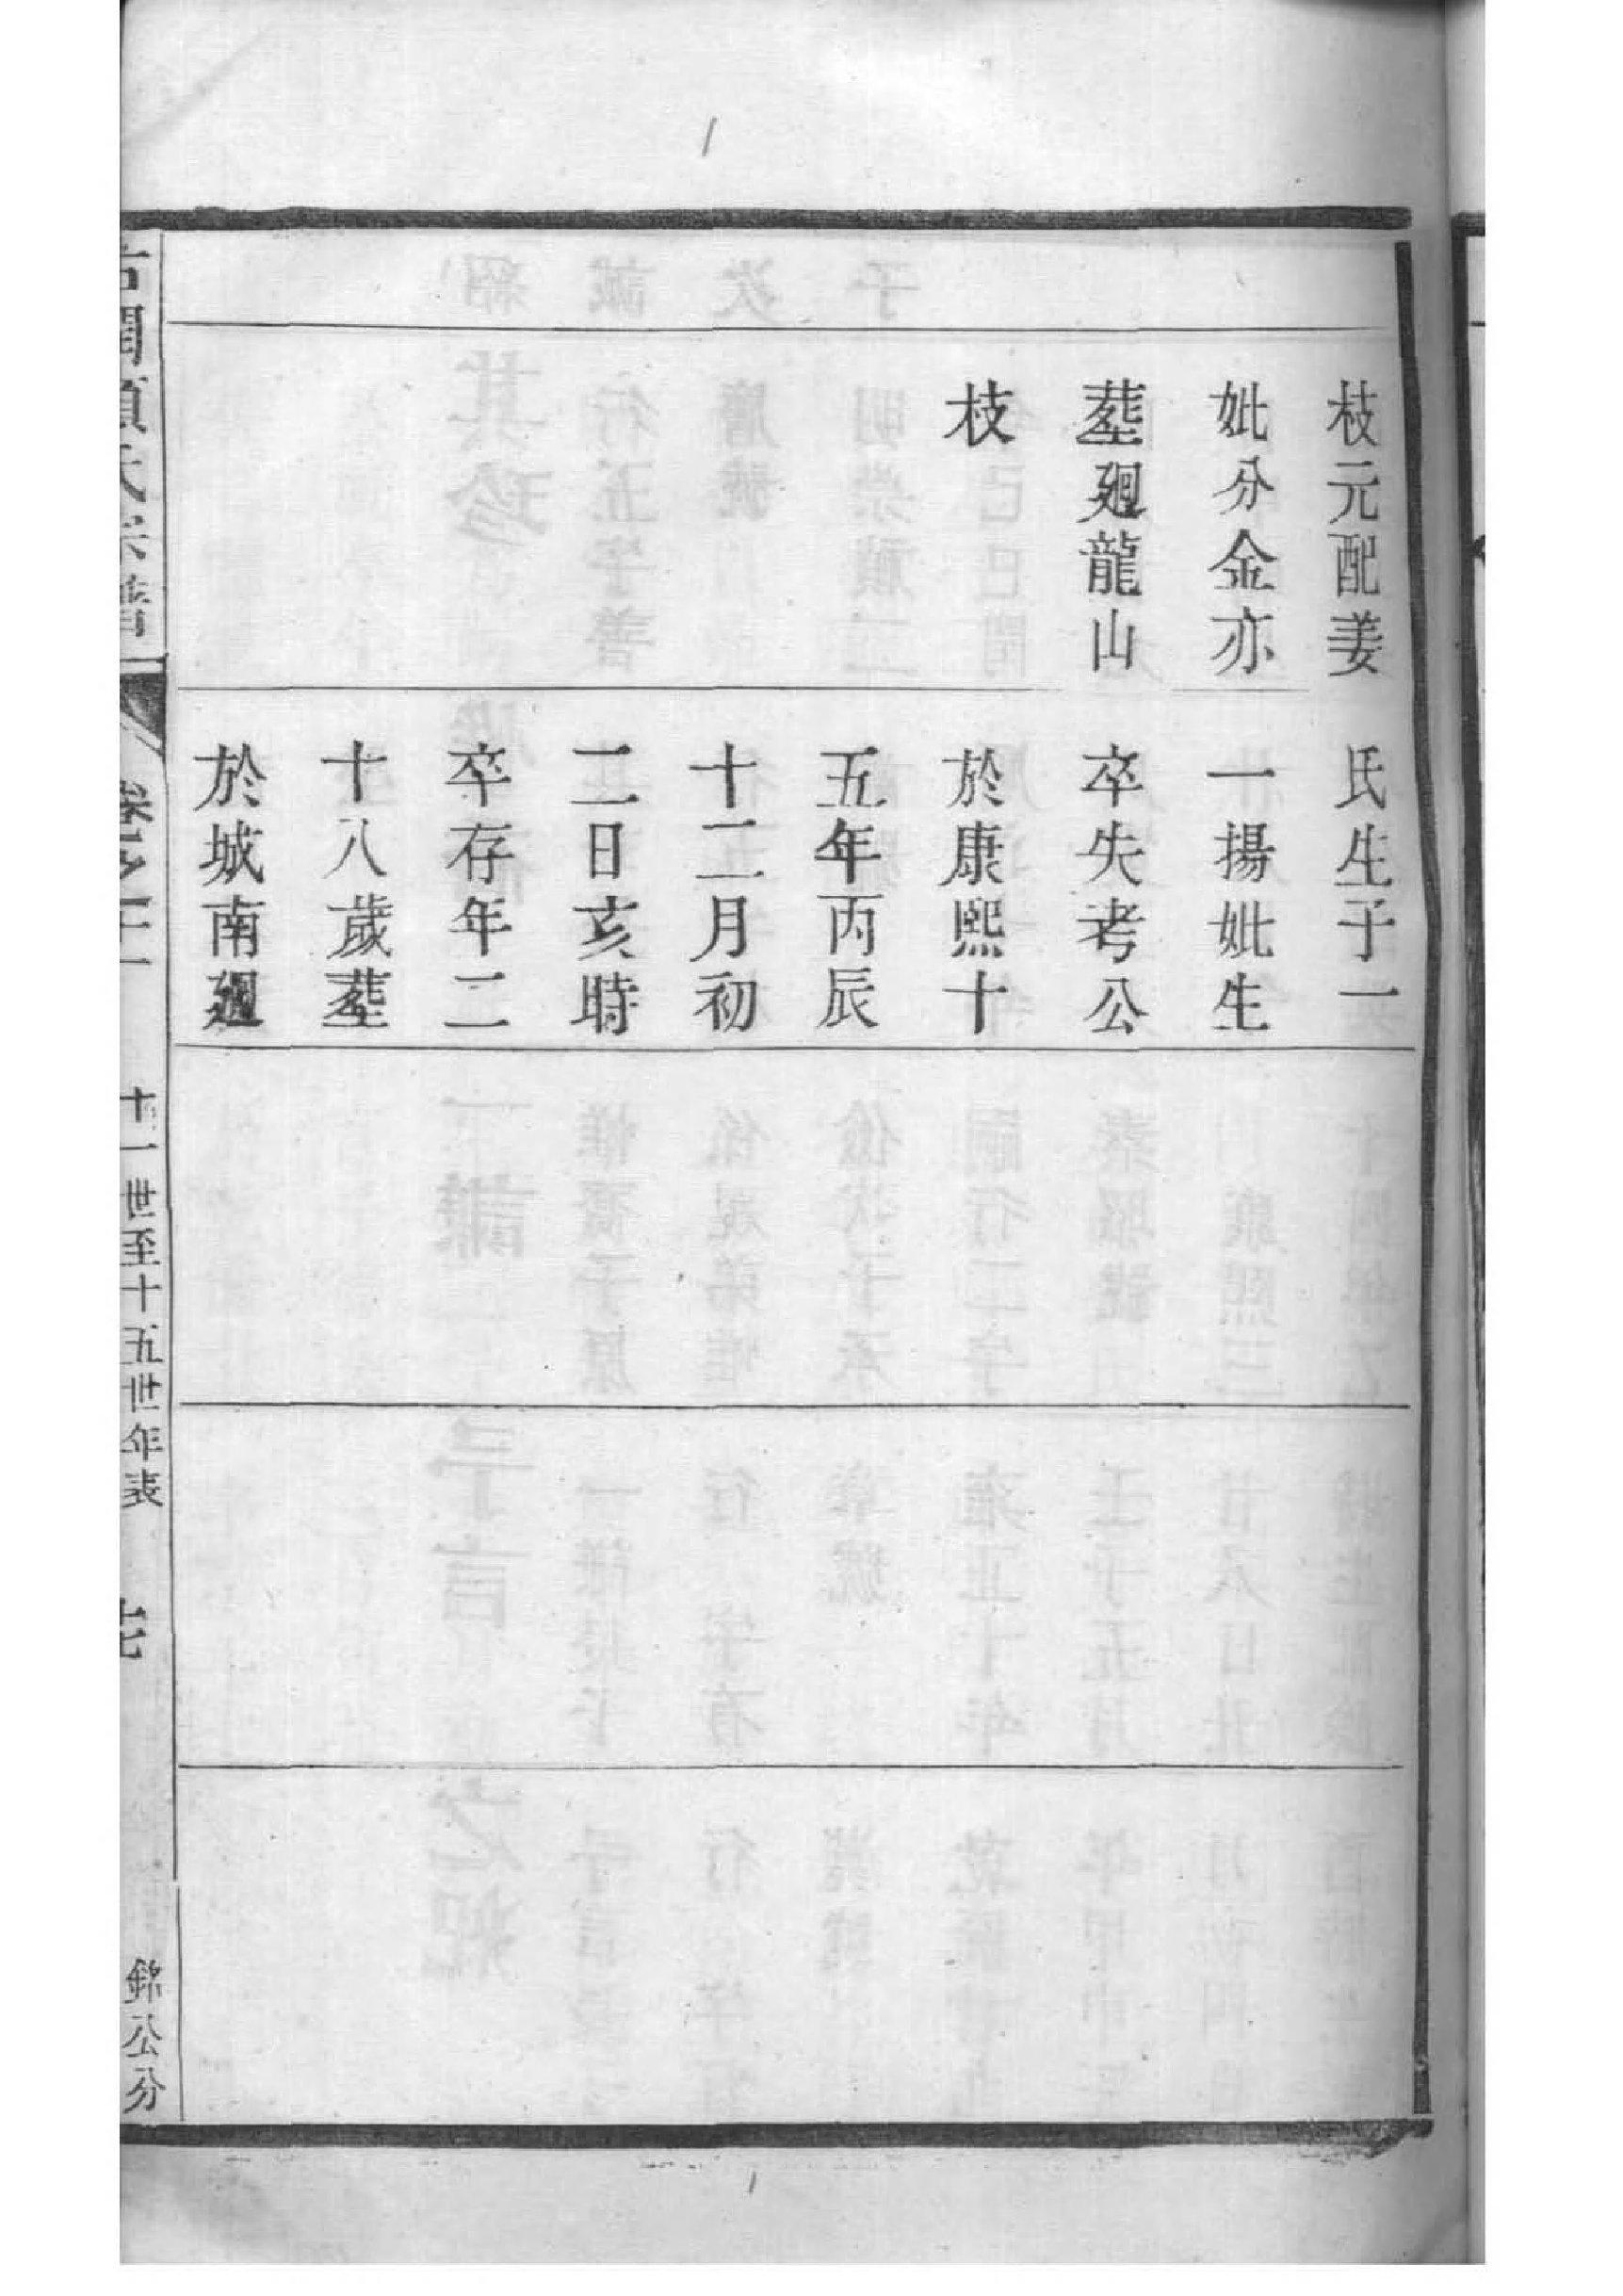 枝元配姜
妣分金亦
葬廻龍山
枝
氏生子一
一揚妣生
卒失考公
於康熙十
五年丙辰
十二月初
二日亥時
卒存年二
十八歲葬
於城南廻
十一世至十五世年表
銘公分